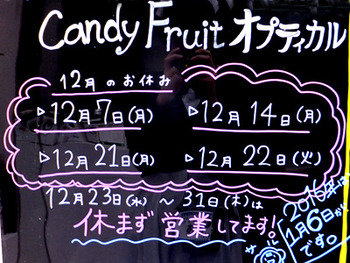 Candy Fruit オプティカル
12月のお休み
▷12月7日(月) ▷12月14日(月)
▷12月21日(月) ▷12月22日(火)
12月23日(水) ～ 31日(木)は
休まず営業してます!!
2016年は
1月6日から
です。